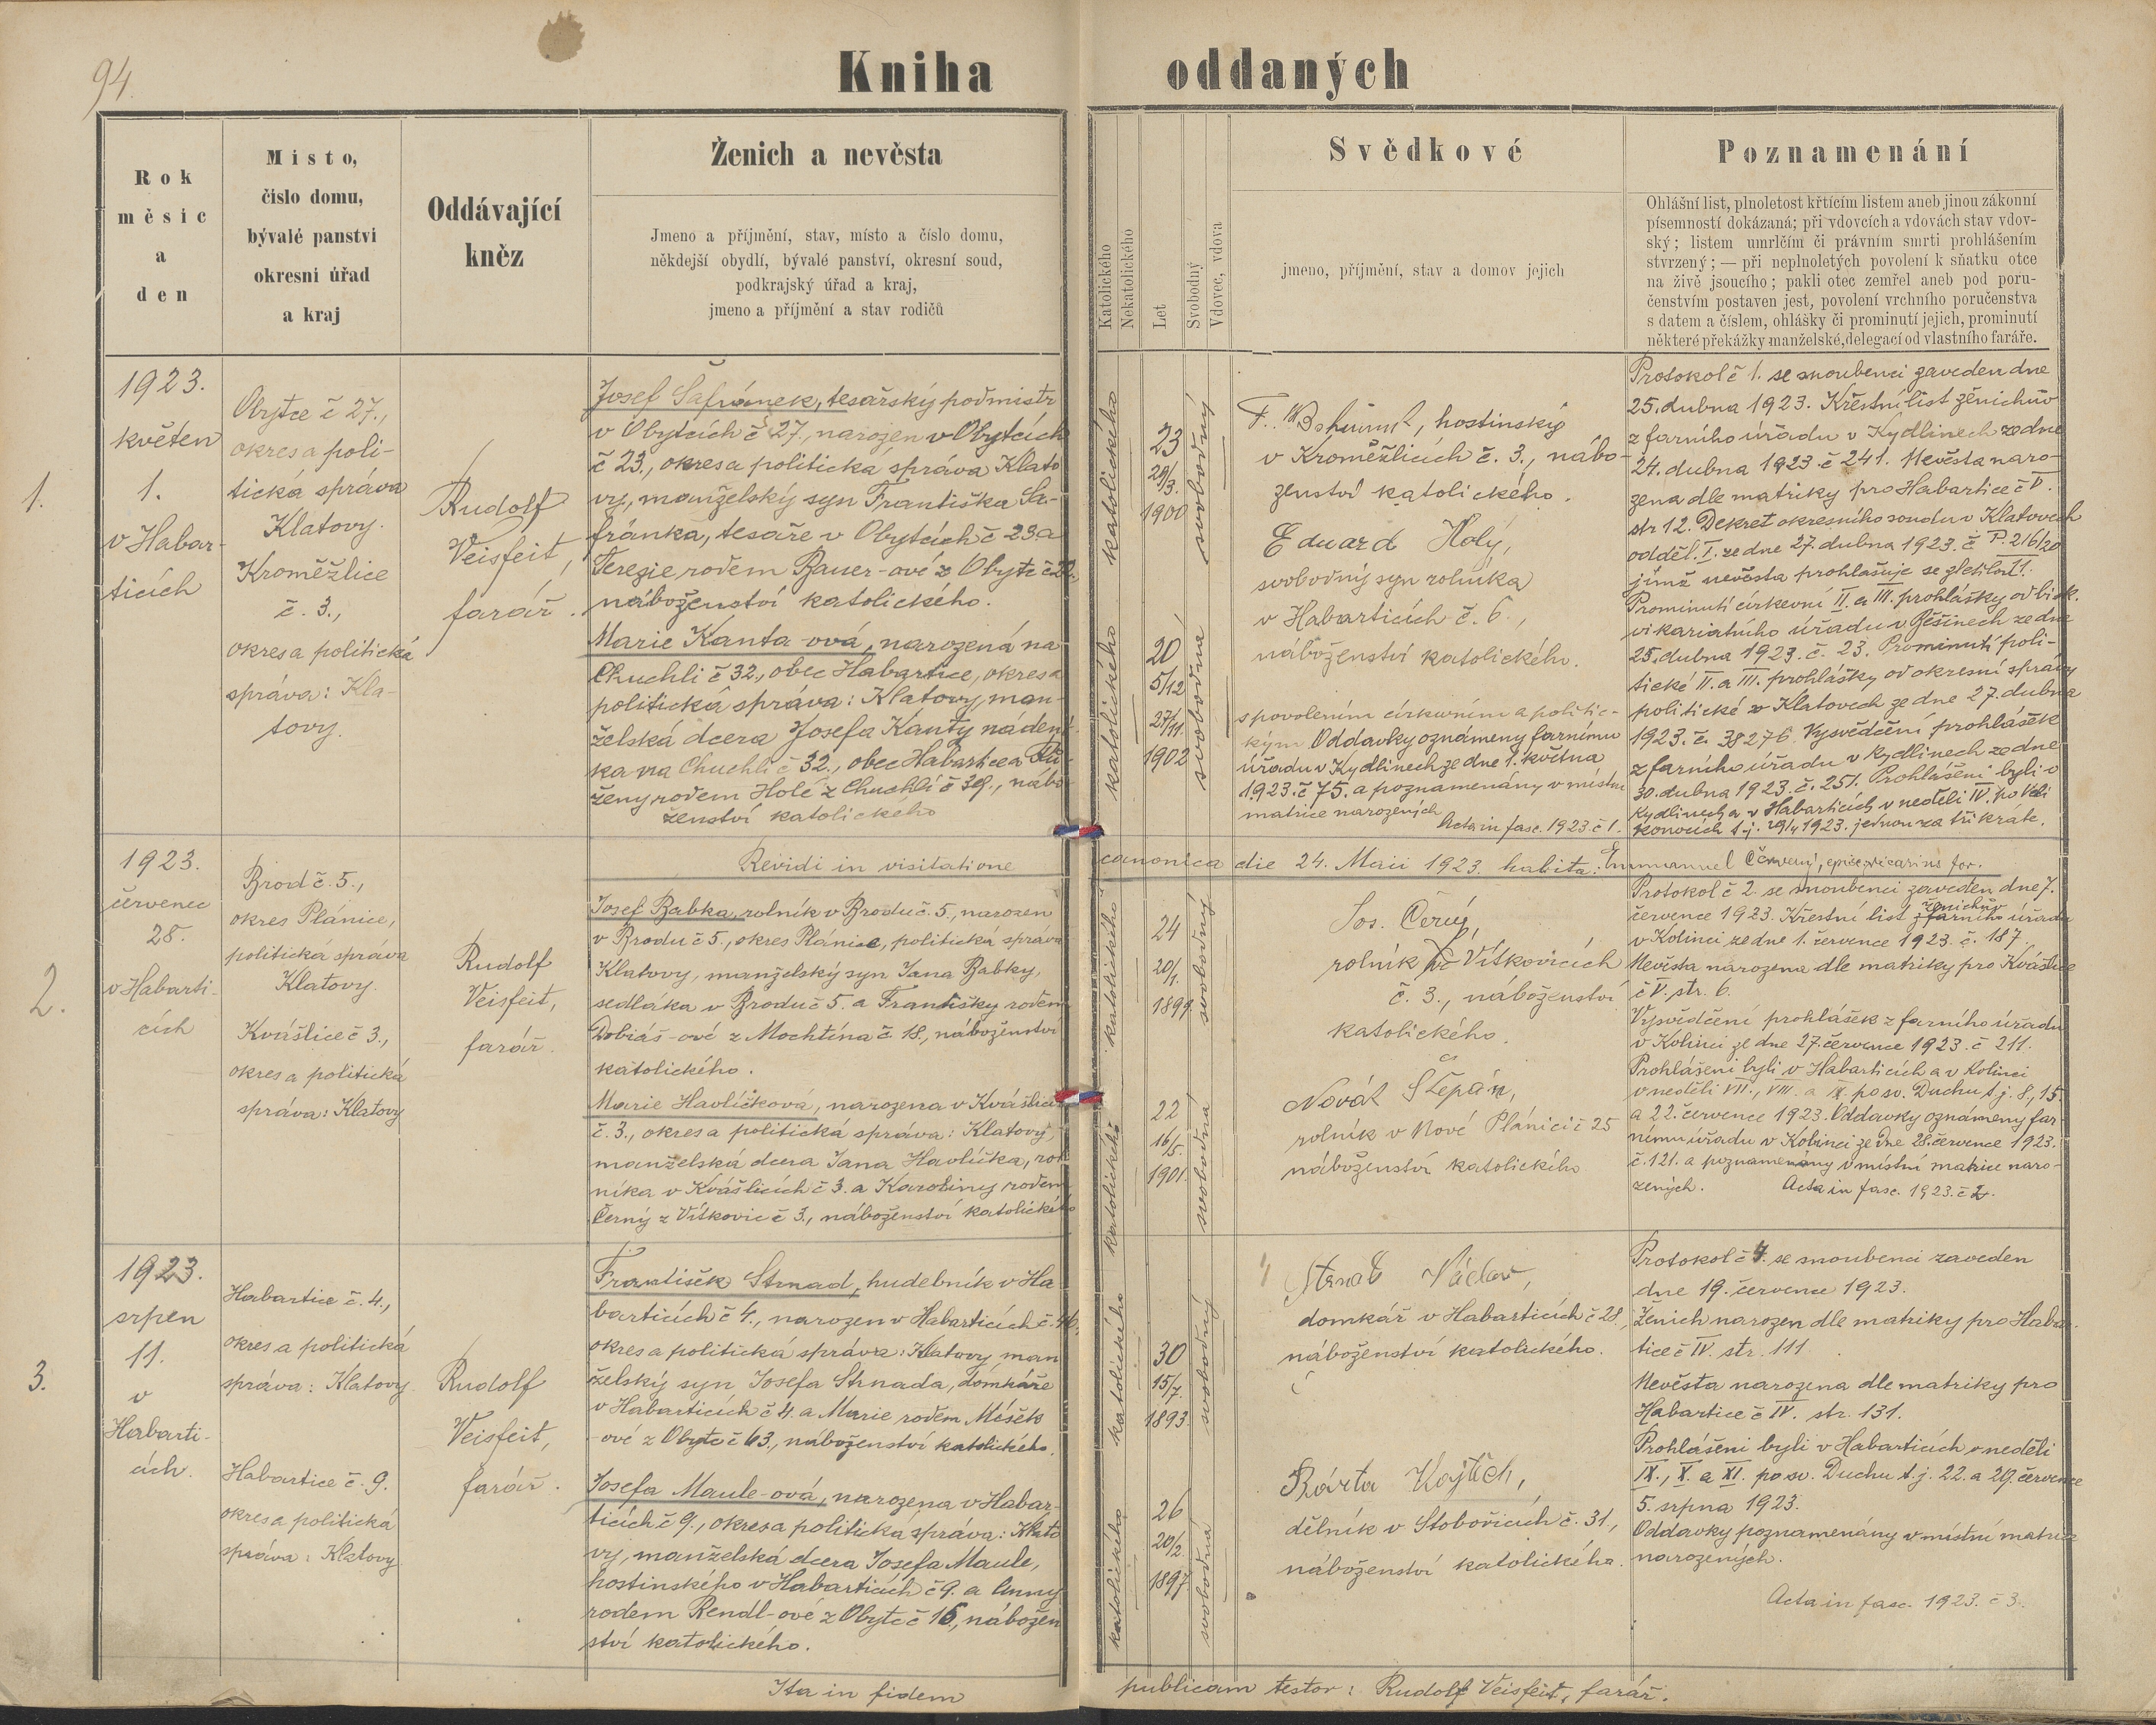 94.
Kniha oddaných
Rok
měsíc
a
den
Místo,
číslo domu,
bývalé panství
okresní úřad
a kraj
Oddávající
kněz
Ženich a nevěsta
Jmeno a příjmění, stav, místo a číslo domu,
někdejší obydlí, bývalé panství, okresní soud,
podkrajský úřad a kraj,
jmeno a příjmění a stav rodičů
Katolického
Nekatolického
Let
Svobodný
Vdovec, vdova
Svědkové
jmeno, příjmění, stav a domov jejich
Poznamenání
Ohlášní list, plnoletost křtícím listem aneb jinou zákonní
písemností dokázaná; při vdovcích a vdovách stav vdov-
ský; listem umrlčím či právním smrti prohlášením
stvrzený; — při neplnoletých povolení k sňatku otce
na živě jsoucího; pakli otec zemřel aneb pod poru-
čenstvím postaven jest, povolení vrchního poručenstva
s datem a číslem, ohlášky či prominutí jejich, prominutí
některé překážky manželské, delegací od vlastního faráře.
1.
1923.
květen
1.
v Habar-
ticích
Obytce č 27.,
okres a poli-
tická správa
Klatovy.
Kroměžlice
č. 3.,
okres a politická
správa: Kla-
tovy.
Rudolf
Veisfeit,
farář.
Josef Šafránek, tesařský podmistr
v Obytcích č 27., narozen v Obytcích
č 23., okres a politická správa Klato
vy, manželský syn Františka Ša-
fránka, tesaře v Obytcích č 23 a
Terezie rodem Bauer-ové z Obytc č
náboženství katolického.
Marie Kanta-ová, narozená na
Chuchli č 32., obec Habartice, okres a
politická správa: Klatovy, man-
želská dcera Josefa Kanty nádení
ka na Chuchli č 32., obec Habartice a
ženy rodem Holé z Chuchlí č 39., nábo
ženství katolického
katolického
23
29/3.
1900
svobodný
katolického
20
5/12
27/11.
1902
svobodná
F. hostinský
v Kroměžlicích č. 3., nábo-
ženství katolického.
Eduard Holý,
svobodný syn rolníka
v Habarticích č. 6.,
náboženství katolického.
s povolením církevním a politic-
kým Oddavky oznámeny farnímu
úřadu v Kydlinech ze dne 1. května
1923. č 75. a poznamenány v místní
matrice narozených
Acta in fasc. 1923. č 1.
Protokol č 1. se snoubenci zaveden dne
25. dubna 1923. Křestní list ženichův
z farního úřadu v Kydlinech ze dne
24. dubna 1923 č 241. Nevěsta naro-
zena dle matriky pro Habartice č V.
str 12. Dekret okresního soudu v Klatovech
odděl. I. ze dne 27. dubna 1923. č P. 216/20
jímž nevěsta prohlašuje se zletilou!
Prominutí církevní II. a III. prohlášky od bisk.
vikariatního úřadu v Běšinech ze dne
25. dubna 1923. č. 23. Prominutí poli-
tické II. a III. prohlášky od okresní správy
politické v Klatovech ze dne 27. dubna
1923. č. 38276. Vysvědčení prohlášek
z farního úřadu v Kydlinech ze dne
30. dubna 1923. č. 251. Prohlášeni byli v
Kydlinech a v Habarticích v neděli IV. po Veli
konocích t. j. 29/4 1923. jednou za třikráte.
Revidi in visitatione canonica die 24. Maii 1923. habita: Emmanuel Červený, episc. vicarius for.
2.
1923.
červenec
28.
v Habarti-
cích
Brod č. 5.,
okres Plánice,
politická správa
Klatovy.
Kvášlice č 3.,
okres a politická
správa: Klatovy
Rudolf
Veisfeit,
farář.
Josef Babka, rolník v Brodu č. 5., narozen
v Brodu č 5., okres Plánice, politická správa
Klatovy, manželský syn Jana Babky,
sedláka v Brodu č 5. a Františky rodem
Dobiáš-ové z Mochtína č. 18., náboženství
katolického.
Marie Havlíčková, narozena v Kvášlicích
č. 3., okres a politická správa: Klatovy,
manželská dcera Jana Havlíčka, rol
níka v Kvášlicích č 3. a Karoliny rodem
Černý z Vítkovic č 3., náboženství katolického
katolického
24
20/1.
1899.
svobodný
katolického
22
16/5.
1901.
svobodná
Jos. Černý,
rolník ve Vítkovicích
č. 3., náboženství
katolického.
Novák Štěpán,
rolník v Nové Plánici č 25
náboženství katolického
Protokol č 2. se snoubenci zaveden dne 7.
července 1923. Křestní list ženichův z farního úřadu
v Kolinci ze dne 1. července 1923. č. 187.
Nevěsta narozena dle matriky pro Kvášlice
č V. str. 6.
Vysvědčení prohlášek z farního úřadu
v Kolinci ze dne 27. července 1923. č 211.
Prohlášeni byli v Habarticích a v Kolinci
v neděli VII., VIII. a IX. po sv. Duchu t. j. 8., 15.
a 22. července 1923. Oddavky oznámeny far-
nímu úřadu v Kolinci ze dne 28. července 1923.
č. 121. a poznamenány v místní matrice naro-
zených. Acta in fasc. 1923. č 2.
3.
1923.
srpen
11.
v
Habarti-
cích.
Habartice č. 4.,
okres a politická
správa: Klatovy
Habartice č. 9.
okres a politická
správa: Klatovy
Rudolf
Veisfeit,
farář.
František Strnad, hudebník v Ha
barticích č 4., narozen v Habarticích č.
okres a politická správa: Klatovy, man
želský syn Josefa Strnada, domkáře
v Habarticích č 4. a Marie rodem Míšek
-ové z Obytc č 63., náboženství katolického.
Josefa Maule-ová, narozena v Habar-
ticích č 9., okres a politická správa: Klato
vy, manželská dcera Josefa Maule,
hostinského v Habarticích č 9. a Anny
rodem Rendl-ové z Obytc č 15., nábožen
ství katolického.
katolického
30
15/7.
1893.
svobodný
katolického
26
20/2.
1897
svobodná
Strnad Václav,
domkář v Habarticích č 28.,
náboženství katolického.
Bárta Vojtěch,
dělník v Stobořicích č. 31.,
náboženství katolického.
Protokol č 4. se snoubenci zaveden
dne 19. července 1923.
Ženich narozen dle matriky pro Habar-
tice č IV. str. 111.
Nevěsta narozena dle matriky pro
Habartice č IV. str. 131.
Prohlášeni byli v Habarticích v neděli
IX., X. a XI. po sv. Duchu t. j. 22. a 29. července
5. srpna 1923.
Oddavky poznamenány v místní matrice
narozených.
Acta in fasc. 1923. č 3.
Ita in fidem publicam testor: Rudolf Veisfeit, farář.